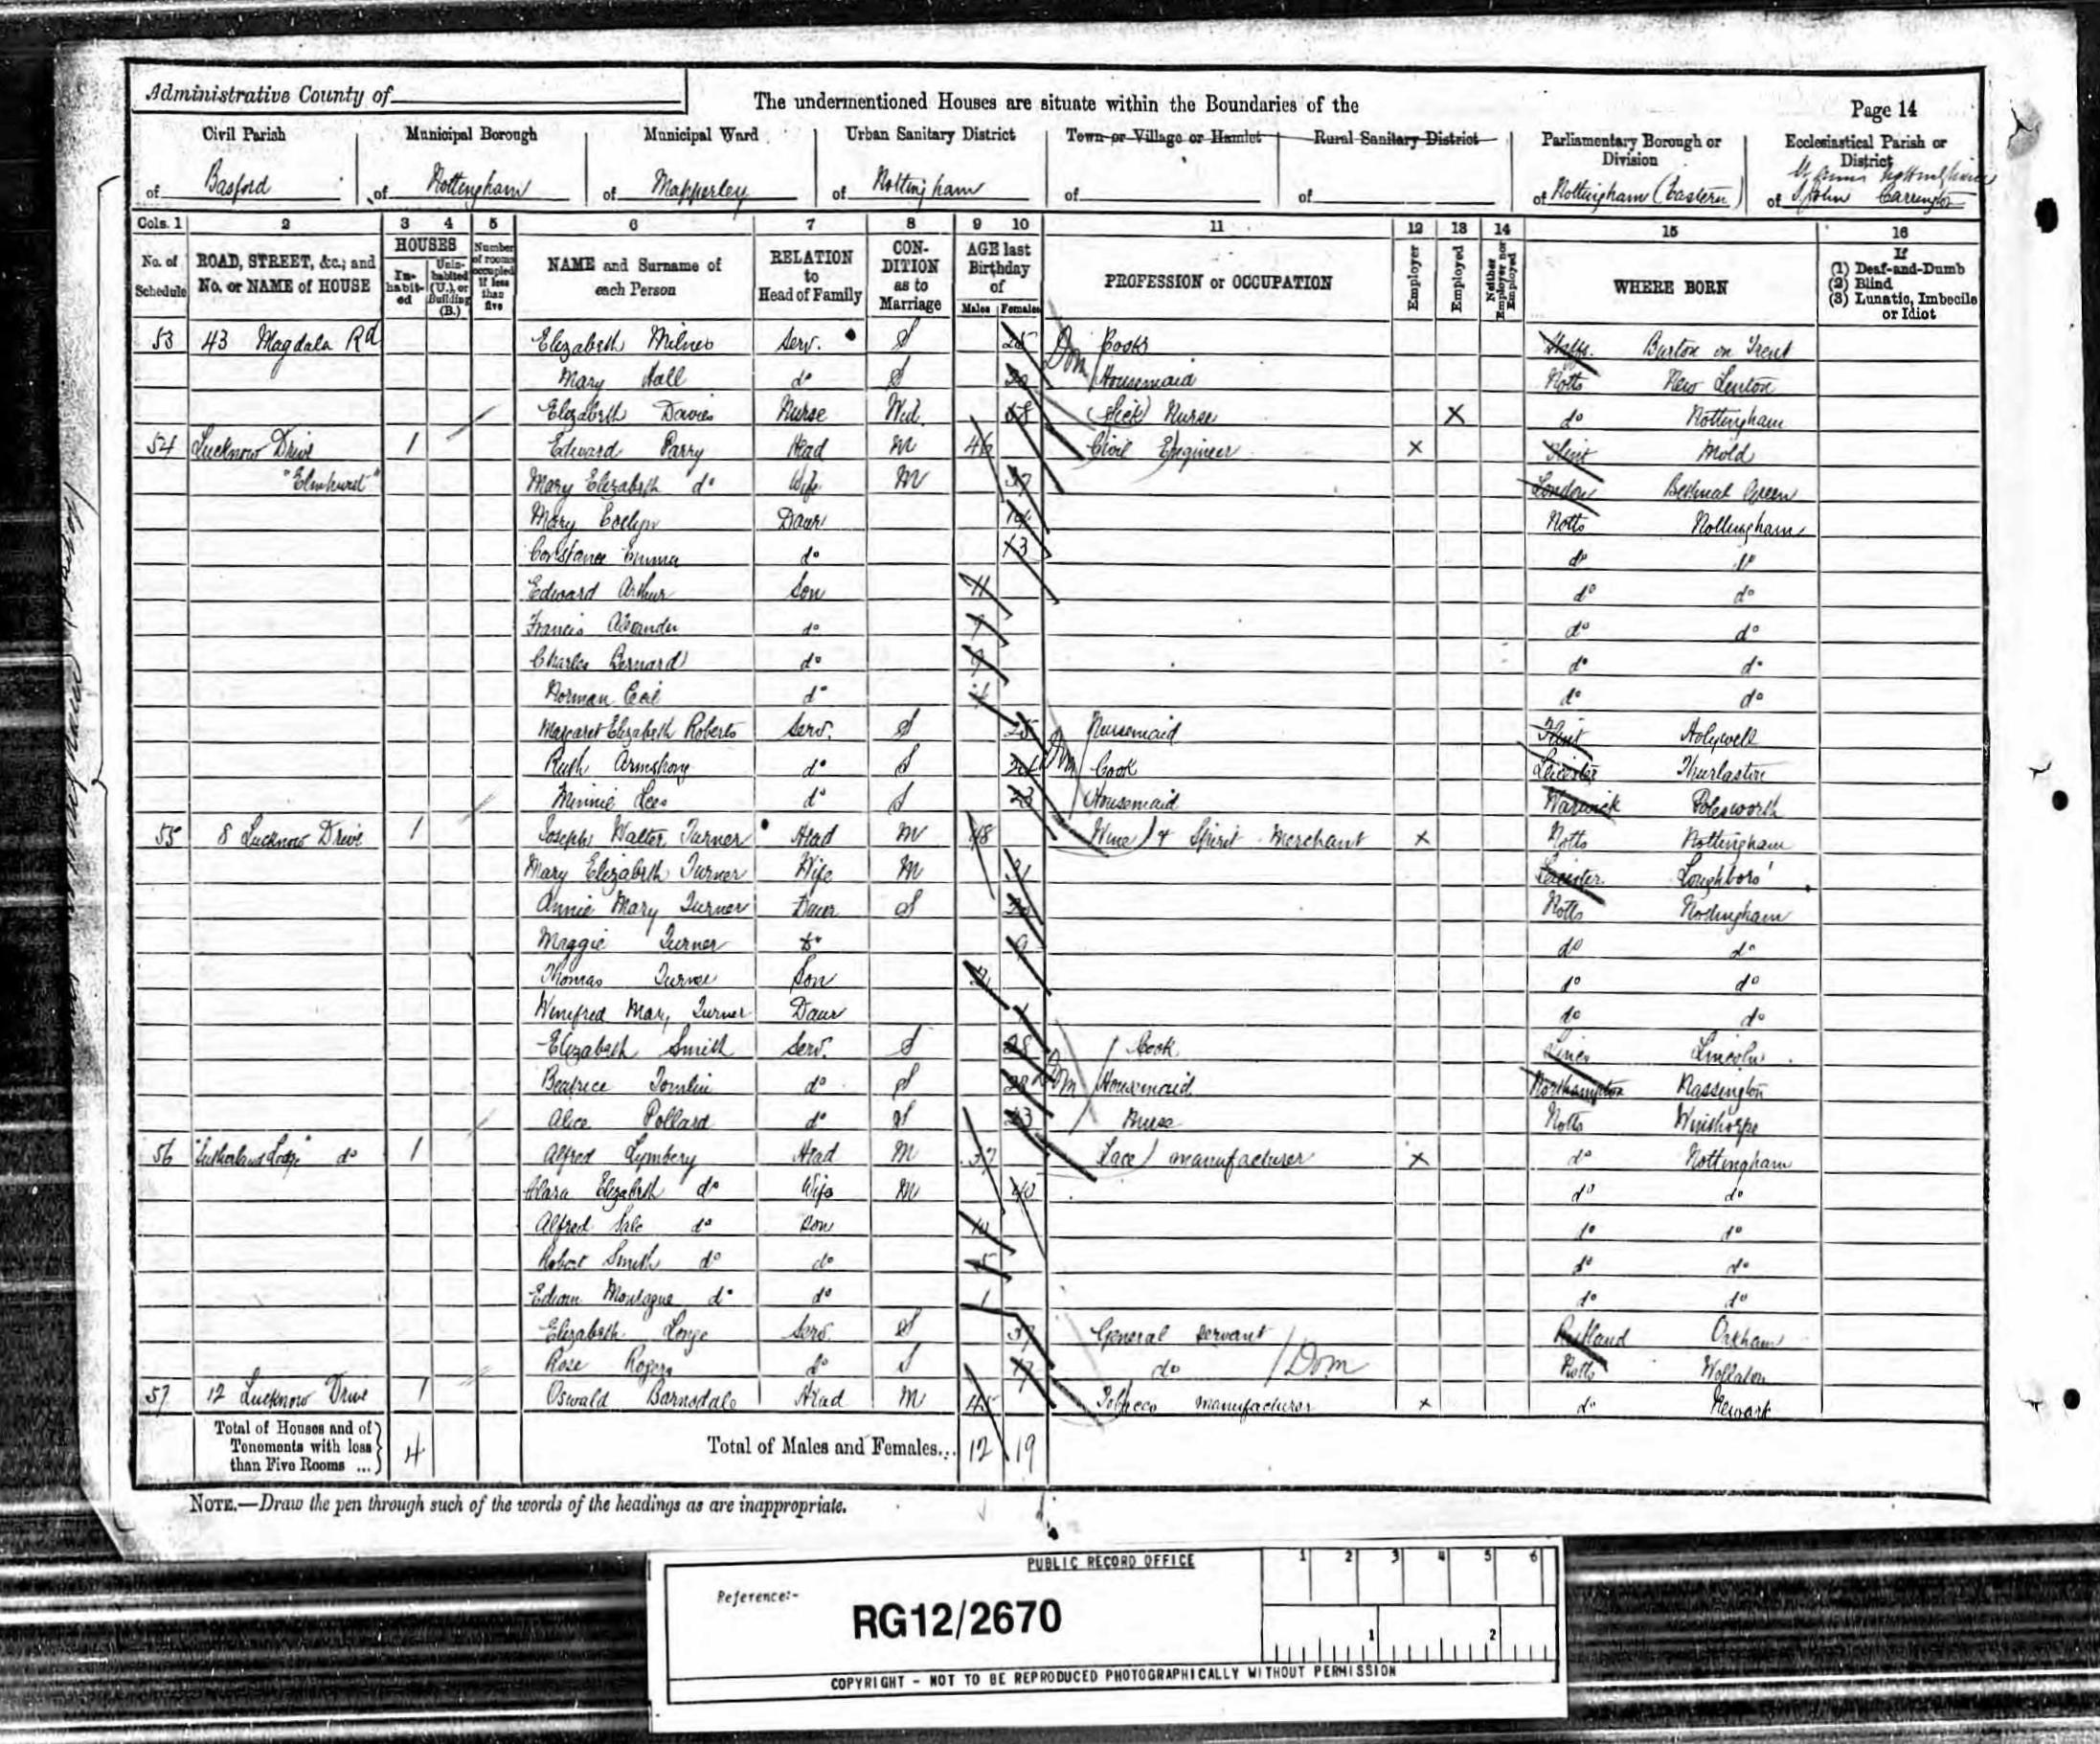 Administrative County of
The undermentioned Houses are situate within the Boundaries of the
Page 14
Civil Parish of Basford
Municipal Borough of Nottingham
Municipal Ward of Mapperley
Urban Sanitary District of Nottingham
Town or Village or Hamlet of
Rural Sanitary District of
Parliamentary Borough or Division of Nottingham (Eastern)
Ecclesiastical Parish or District of St John Carrington
Cols. 1 2 3 4 5 6 7 8 9 10 11 12 13 14 15 16
No. of Schedule
ROAD, STREET, &c., and No. or NAME of HOUSE
HOUSES
Inhabited
Uninhabited (U.), or Building (B.)
Number of rooms occupied if less than five
NAME and Surname of each Person
RELATION to Head of Family
CONDITION as to Marriage
AGE last Birthday of
Males Females
PROFESSION or OCCUPATION
Employer
Employed
Neither Employer nor Employed
WHERE BORN
If
(1) Deaf-and-Dumb
(2) Blind
(3) Lunatic, Imbecile or Idiot
53 43 Magdala Rd Elizabeth Milnes Serv. S 25 Dom Cook Staffs. Burton on Trent
Mary Hall do S Housemaid Notts New Lenton
Elizabeth Davies Nurse Wid. 58 (Sick) Nurse X do Nottingham
54 Lucknow Drive 1 Edward Parry Head M 46 Civil Engineer X Flint Mold
"Elmhurst" Mary Elizabeth do Wife M 37 London Bethnal Green
Mary Evelyn Daur 14 Notts Nottingham
Constance Emma do 13 do do
Edward Arthur Son 11 do do
Francis Alexander do 9 do do
Charles Bernard do 9 do do
Norman Cecil do 4 do do
Margaret Elizabeth Roberts Serv. S 25 Nursemaid Flint Holywell
Ruth Armstrong do S Dom Cook Leicester Thurlaston
Minnie Lees do S 23 Housemaid Warwick Polesworth
55 8 Lucknow Drive 1 Joseph Walter Turner Head M 48 Wine & Spirit Merchant X Notts Nottingham
Mary Elizabeth Turner Wife M 31 Leicester Loughboro'
Annie Mary Turner Daur S 20 Notts Nottingham
Maggie Turner do 9 do do
Thomas Turner Son do do
Winifred Mary Turner Daur 1 do do
Elizabeth Smith Serv. S 28 Cook Linc Lincoln
Beatrice Tomlin do S Dom Housemaid Northampton Nassington
Alice Pollard do S 23 Nurse Notts Winthorpe
56 "Sutherland Lodge" do 1 Alfred Lymbery Head M 37 Lace manufacturer X do Nottingham
Clara Elizabeth do Wife M 40 do do
Alfred do Son 10 do do
Robert Smith do do 5 do do
Edwin Montague do do 1 do do
Elizabeth Serv. S 37 General servant Rutland Oakham
Rose Rogers do S 17 do Dom Notts Wollaton
57 12 Lucknow Drive 1 Oswald Barnsdale Head M 45 Tobacco manufacturer X do Newark
Total of Houses and of Tenements with less than Five Rooms ... 4
Total of Males and Females... 12 19
NOTE.—Draw the pen through such of the words of the headings as are inappropriate.
PUBLIC RECORD OFFICE
1 2 3 4 5 6
Reference:-
RG12/2670
1 2
COPYRIGHT - NOT TO BE REPRODUCED PHOTOGRAPHICALLY WITHOUT PERMISSION